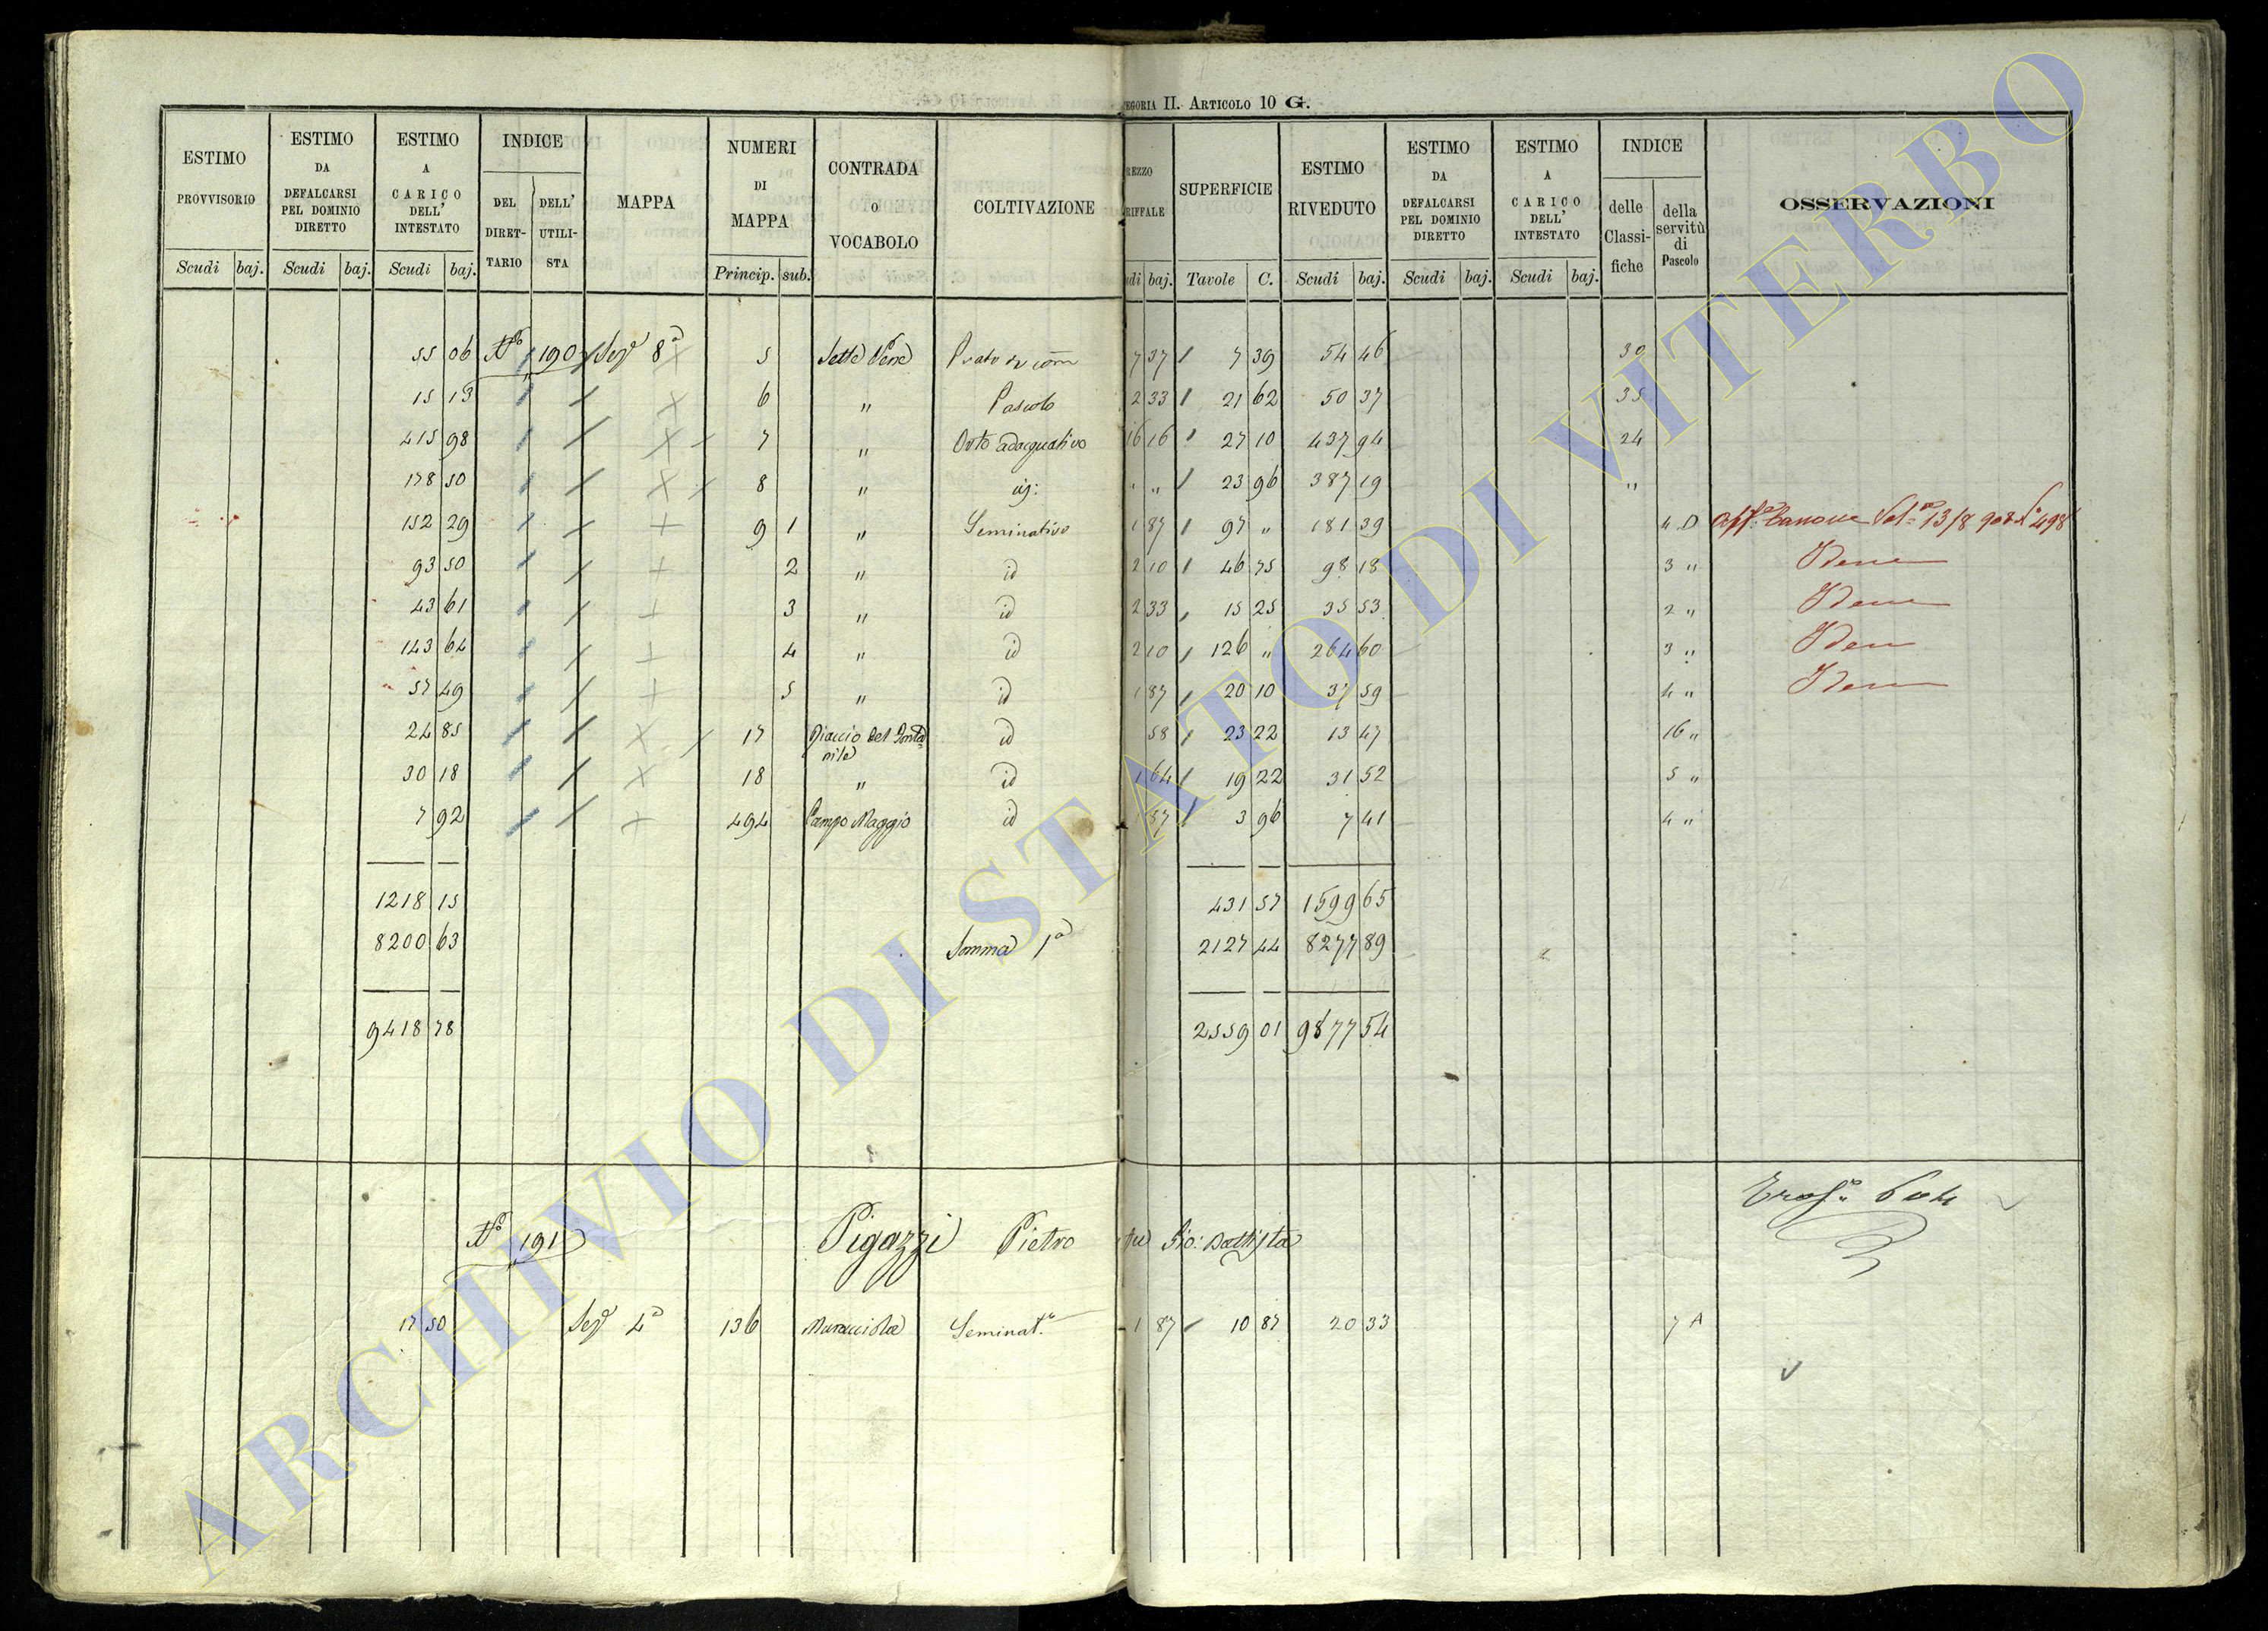 CATEGORIA II. ARTICOLO 10 G.
ESTIMO PROVVISORIO | ESTIMO DA DEFALCARSI PEL DOMINIO DIRETTO | ESTIMO A CARICO DELL' INTESTATO | INDICE DEL DIRET-TARIO | DELL' UTILI-STA | MAPPA | NUMERI DI MAPPA | CONTRADA O VOCABOLO | COLTIVAZIONE | REZZO RIFFALE | SUPERFICIE | ESTIMO RIVEDUTO | ESTIMO DA DEFALCARSI PEL DOMINIO DIRETTO | ESTIMO A CARICO DELL' INTESTATO | INDICE delle Classi-fiche | della servitù di Pascolo | OSSERVAZIONI
Scudi baj. Scudi baj. Scudi baj. Princip. sub. udi baj. Tavole C. Scudi baj. Scudi baj. Scudi baj.
55 06 No 190 Sez 8a 5 Sette Vene Prato 7 37 7 39 54 46 30
15 13 6 " Pascolo 2 33 21 62 50 37 35
415 98 7 " Orto adacquativo 16 16 27 10 437 94 24
178 50 8 " id: " " 23 96 387 19 "
152 29 9 1 " Seminativo 1 87 97 " 181 39 4 D 13/8 908 No 498
93 50 2 " id 2 10 46 75 98 18 3 " Idem
43 61 3 " id 2 33 15 25 35 53 2 " Idem
143 64 4 " id 2 10 126 " 264 60 3 " Idem
57 49 5 " id 1 87 20 10 37 59 4 " Idem
24 85 17 Diaccio del Fonta=nile id 58 23 22 13 47 16 "
30 18 18 " id 1 64 19 22 31 52 5 "
7 92 494 Campo Maggio id 1 87 3 96 7 41 4 "
1218 15 431 57 1599 65
8200 63 Somma 1a 2127 44 8277 89
9418 78 2559 01 9877 54
No 191 Pigazzi Pietro fu Gio: Battista
17 50 Sez 4a 136 Muracciola Seminat.o 1 87 10 87 20 33 7 A
ARCHIVIO DI STATO DI VITERBO